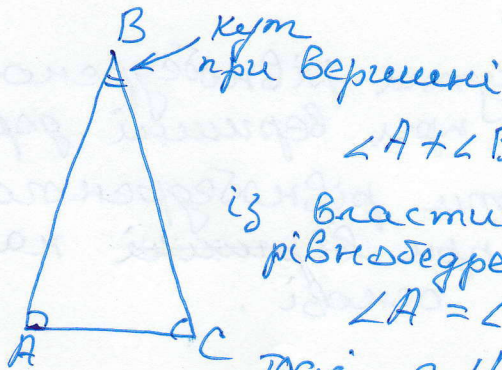 B
кут
при вершині
∠A + ∠B
із власти
рівнобедре
∠A = ∠
A
C